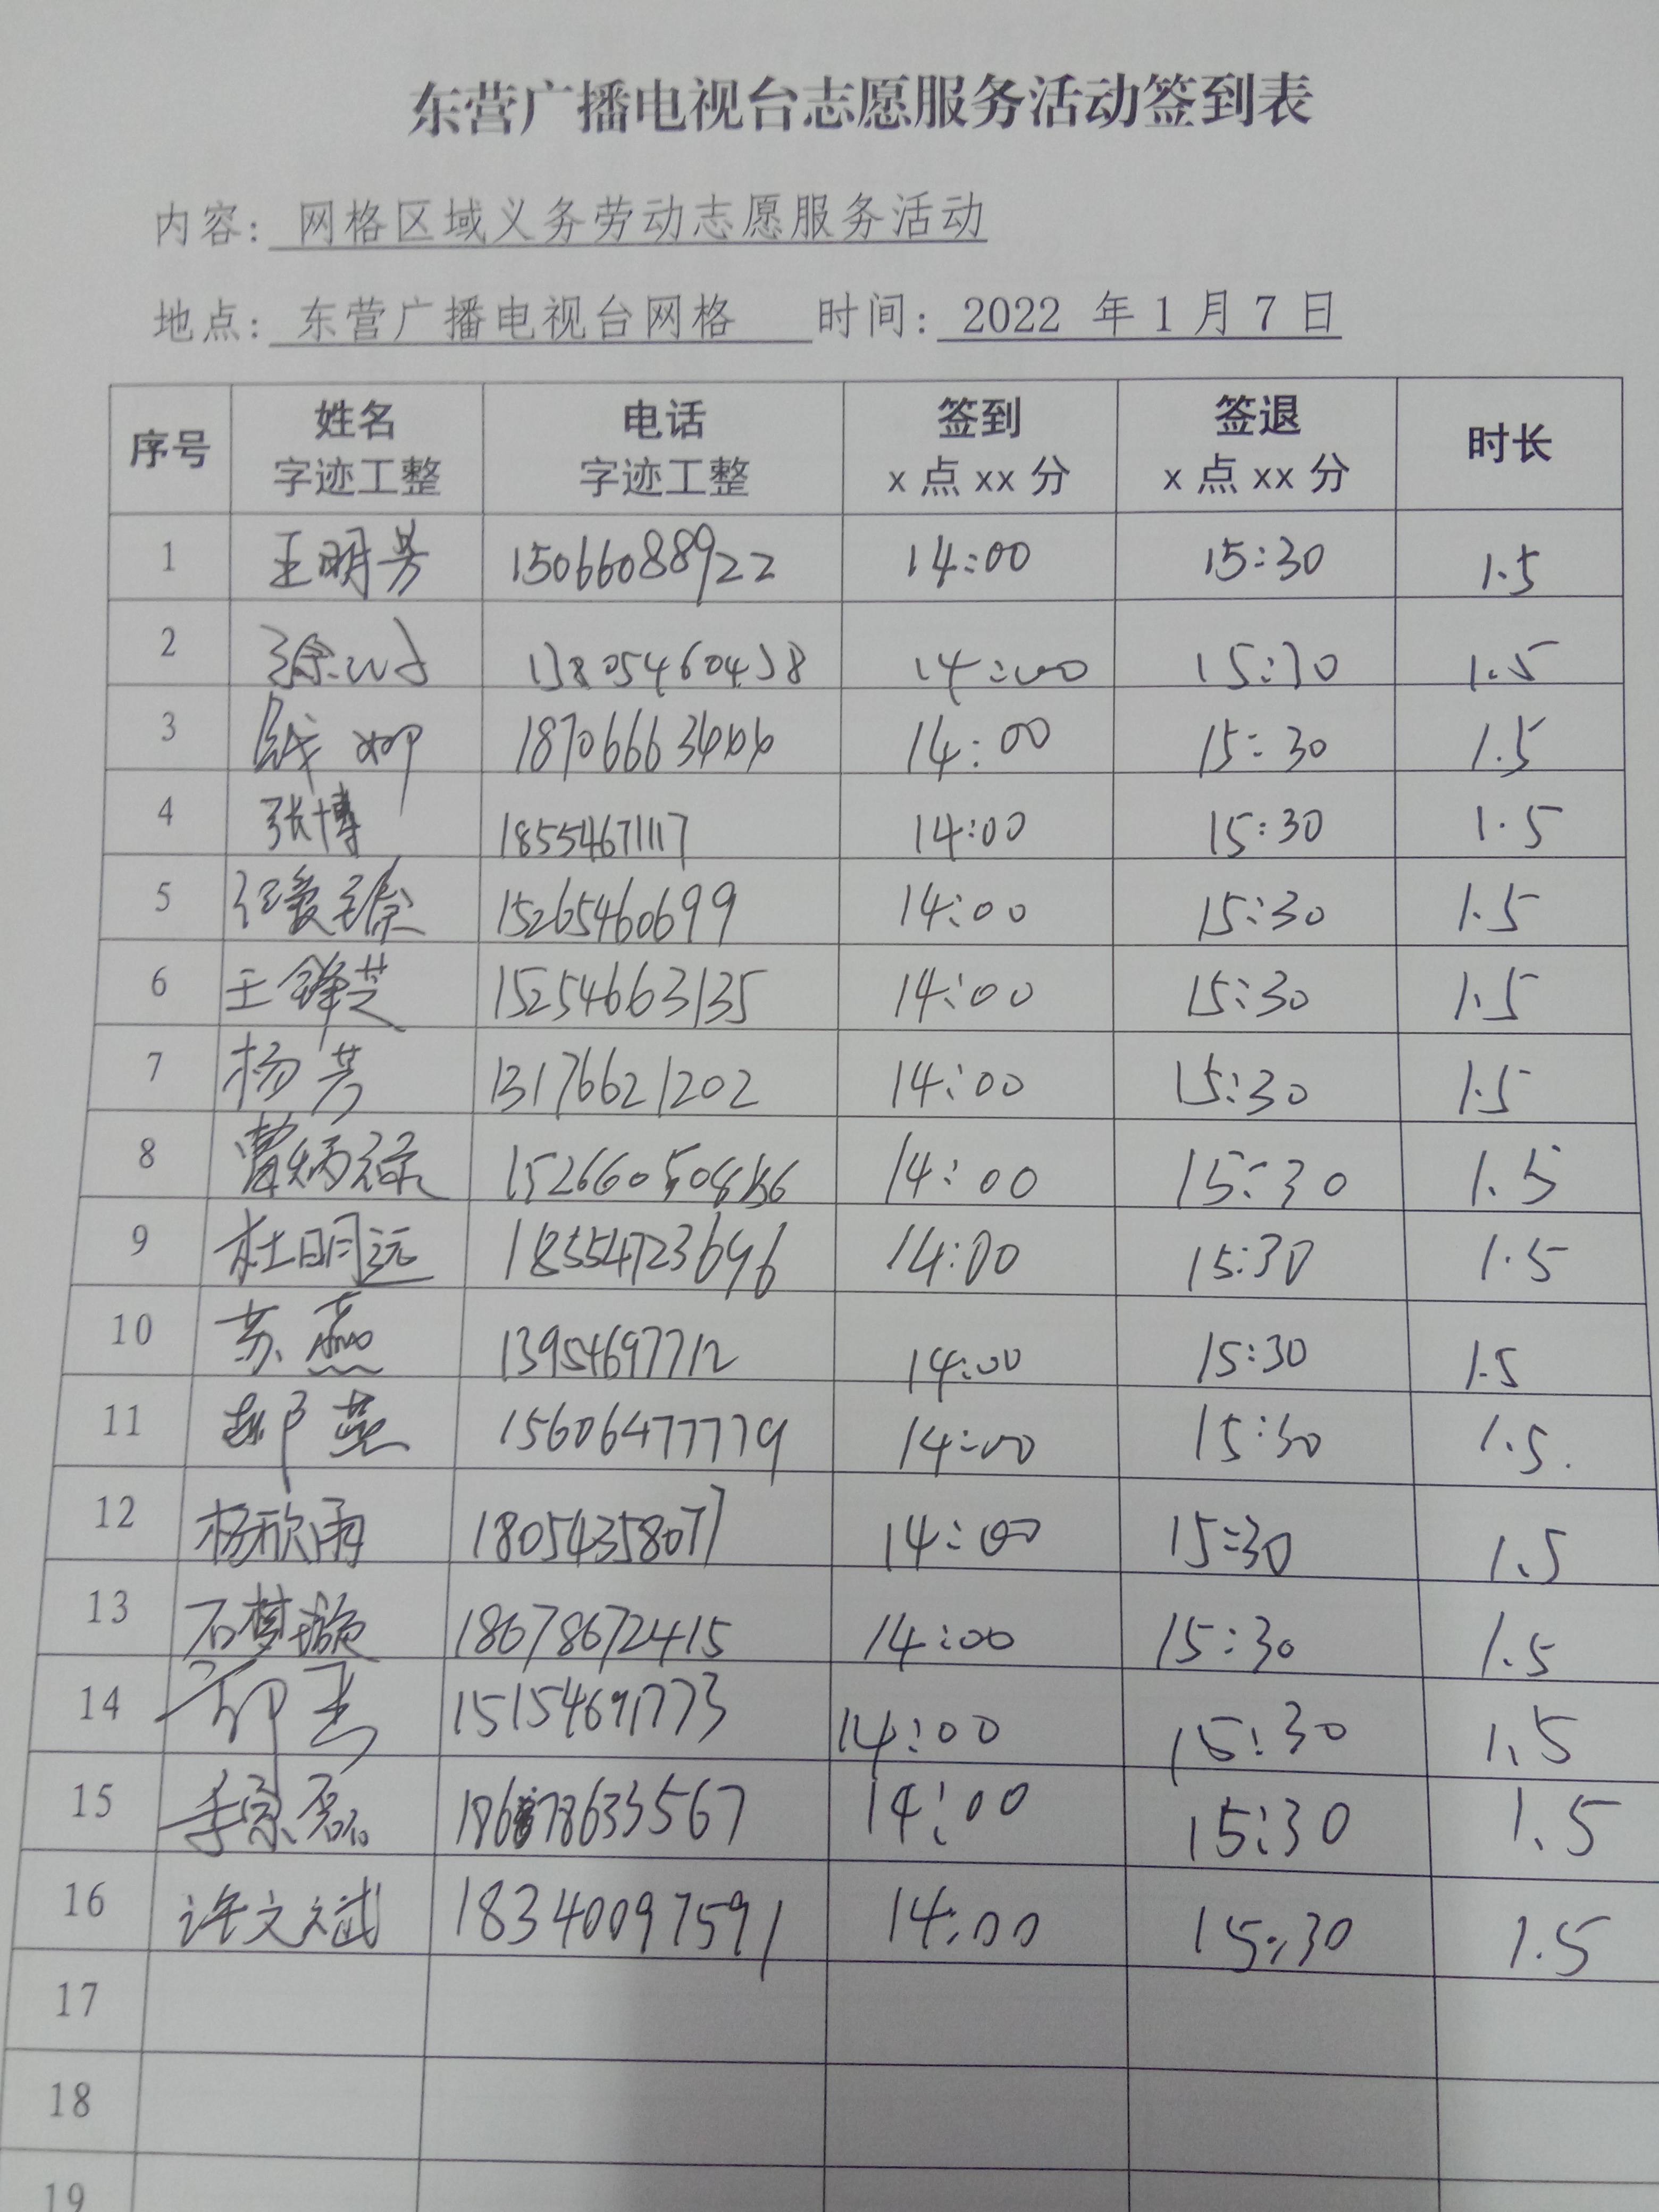 东营广播电视台志愿服务活动签到表
内容: 网格区域义务劳动志愿服务活动
地点: 东营广播电视台网格 时间: 2022 年 1 月 7 日
序号 姓名 字迹工整 电话 字迹工整 签到 x 点 xx 分 签退 x 点 xx 分 时长
1 王明芳 15066088922 14:00 15:30 1.5
2 14:00 15:30 1.5
3 14:00 15:30 1.5
4 张博 18554671117 14:00 15:30 1.5
5 15265460699 14:00 15:30 1.5
6 王锋芝 15254663135 14:00 15:30 1.5
7 杨芳 13176621202 14:00 15:30 1.5
8 14:00 15:30 1.5
9 杜明远 18554723696 14:00 15:30 1.5
10 苏燕 13954697712 14:00 15:30 1.5
11 15606477779 14:00 15:30 1.5.
12 杨欣雨 18054358077 14:00 15:30 1.5
13 石梦璇 18678672415 14:00 15:30 1.5
14 15154691773 14:00 15:30 1.5
15 18678633567 14:00 15:30 1.5
16 许文斌 18340097591 14:00 15:30 1.5
17
18
19